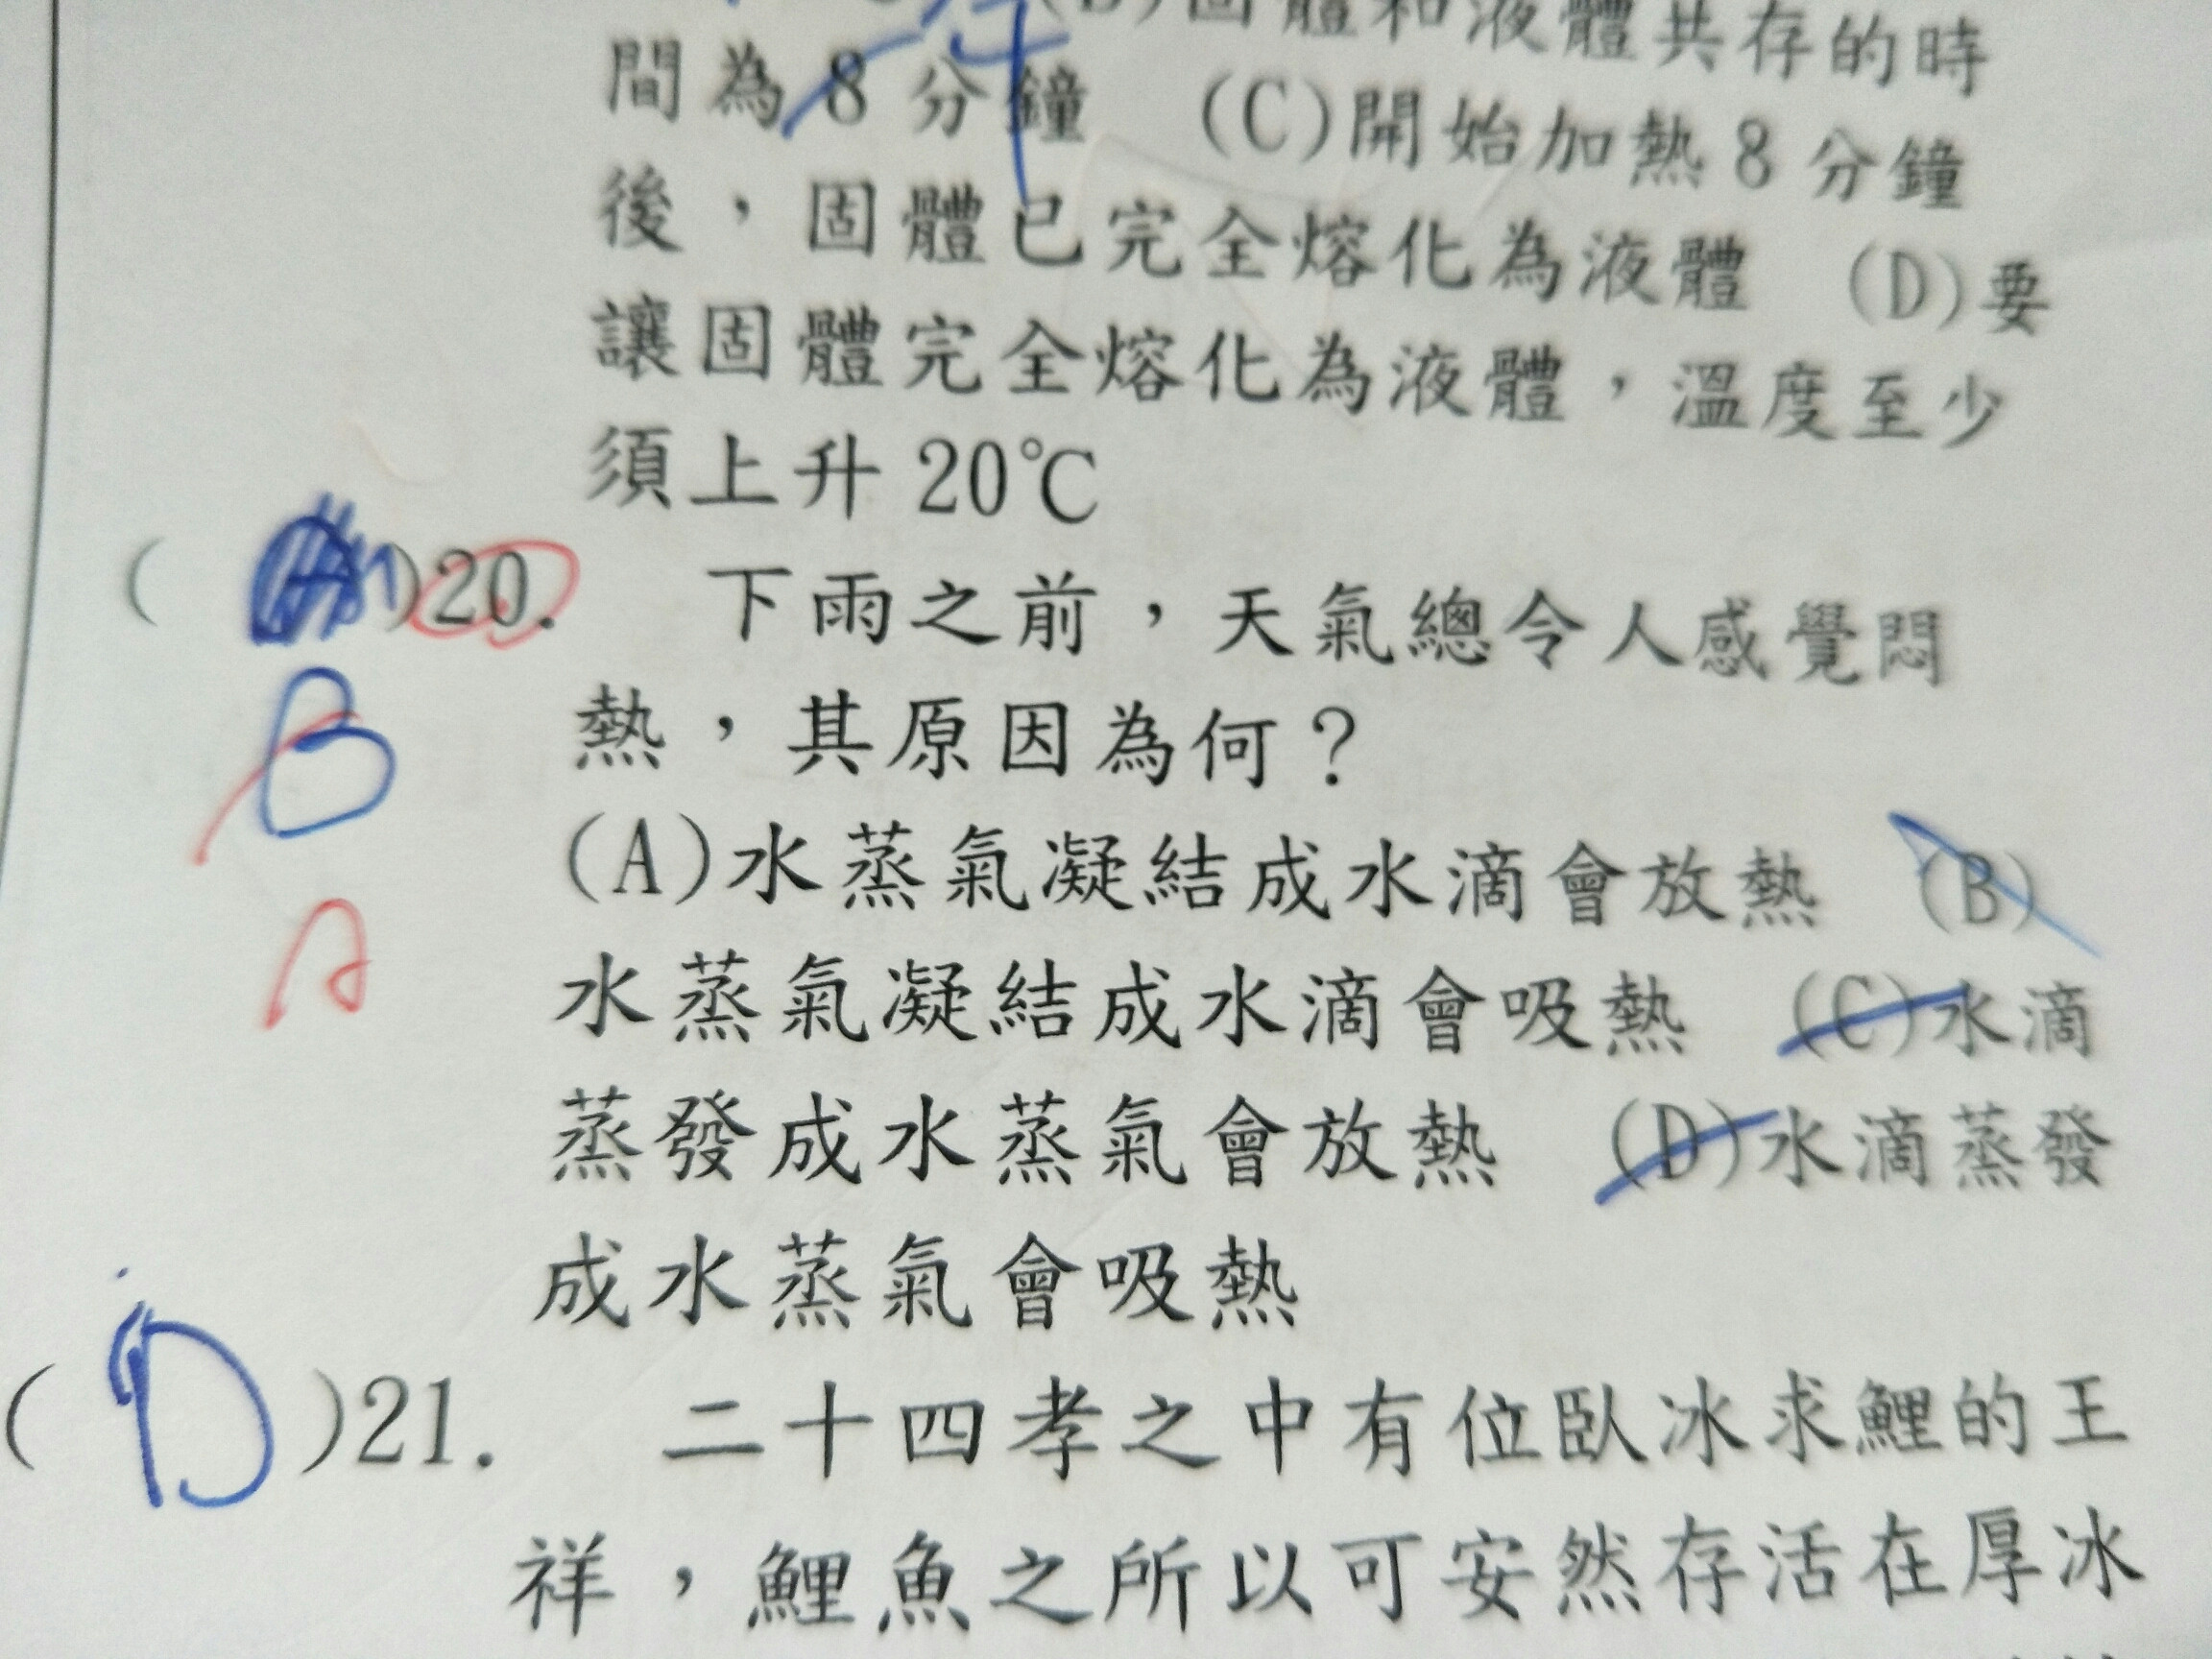 (B)固體和液體共存的時
間為8分鐘 (C)開始加熱8分鐘
後，固體已完全熔化為液體 (D)要
讓固體完全熔化為液體，溫度至少
須上升20℃
( )20. 下雨之前，天氣總令人感覺悶
B
熱，其原因為何？
(A)水蒸氣凝結成水滴會放熱 (B)
A
水蒸氣凝結成水滴會吸熱 (C)水滴
蒸發成水蒸氣會放熱 (D)水滴蒸發
成水蒸氣會吸熱
(D)21. 二十四孝之中有位臥冰求鯉的王
祥，鯉魚之所以可安然存活在厚冰